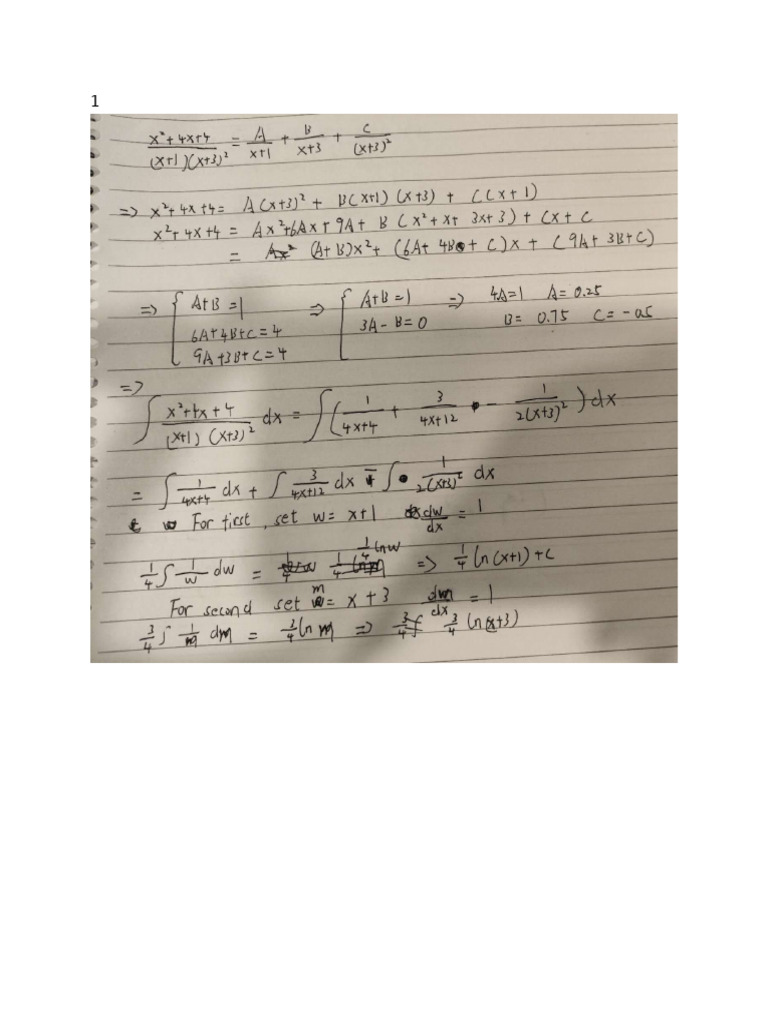 1
x²+4x+4 / (x+1)(x+3)² = A/(x+1) + B/(x+3) + C/(x+3)²
=> x²+4x+4 = A(x+3)² + B(x+1)(x+3) + C(x+1)
x²+4x+4 = Ax²+6Ax+9A + B(x²+x+3x+3) + Cx+C
= (A+B)x² + (6A+4B+C)x + (9A+3B+C)
=> { A+B=1 => { A+B=1 => 4A=1 A=0.25
6A+4B+C=4 3A-B=0 B=0.75 C=-0.5
9A+3B+C=4
=>
∫ x²+4x+4 / (x+1)(x+3)² dx = ∫( 1/(4x+4) + 3/(4x+12) - 1/(2(x+3)²) ) dx
= ∫ 1/(4x+4) dx + ∫ 3/(4x+12) dx - ∫ 1/(2(x+3)²) dx
For first, set w = x+1 dw/dx = 1
1/4 ∫ 1/w dw = 1/4 ln w => 1/4 ln(x+1)+c
For second set m = x+3 dm/dx = 1
3/4 ∫ 1/m dm = 3/4 ln m => 3/4 ln(x+3)